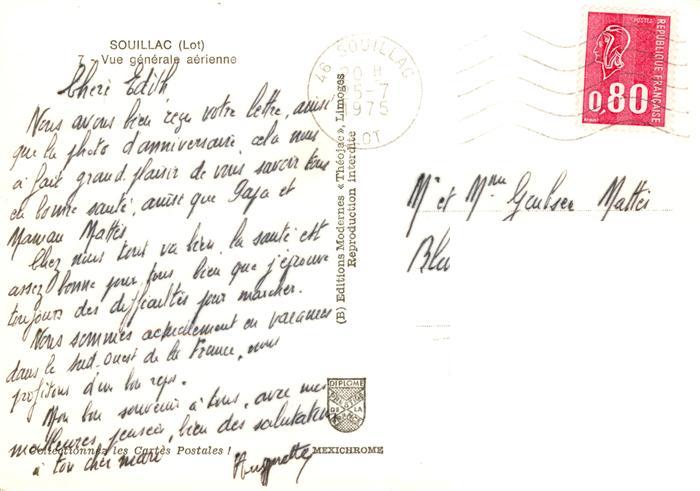 SOUILLAC (Lot)
7 - Vue générale aérienne
Chère Edith
Nous avons bien reçu votre lettre, ainsi
que la photo d'anniversaire, cela nous
a fait grand plaisir de vous savoir tous
en bonne santé, ainsi que Papa et
Maman Mattes
Chez nous tout va bien, la santé est
assez bonne pour tous, bien que j'éprouve
toujours des difficultés pour marcher.
Nous sommes actuellement en vacances
dans le Sud-Ouest de la France, nous
profitons d'un bon repos.
Mon bon souvenir à tous, avec mes
meilleures pensées, bien des salutations
à ton cher mari
Huguette
Collectionnez les Cartes Postales !
MEXICHROME
DIPLOME
DE LA
(B) Editions Modernes « Théojac », Limoges
Reproduction Interdite
46 SOUILLAC
20 H
5-7
1975
LOT
POSTES
REPUBLIQUE FRANÇAISE
0,80
Mr et Mme Mattes